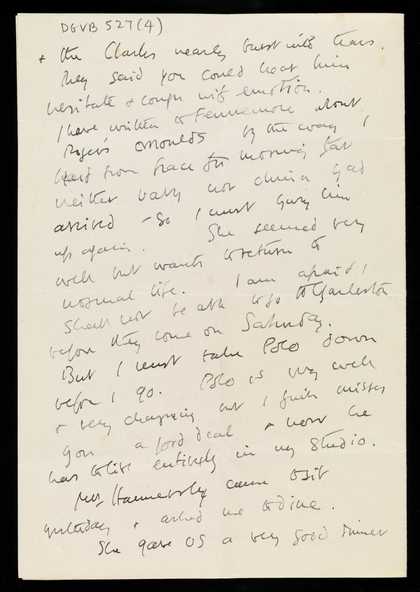 DGVB 527(4)
+ the Clarks nearly burst into tears.
They said you could hear him
hesitate & cough with emotion.
I have written to Fennemore about
Roger's by the way, I
heard from Grace this morning that
neither bath nor china had
arrived - so I must him
up again. She seemed very
well but wants to return to
normal life. I am afraid I
shall not be able to go to Charleston
before they come on Saturday.
But I must take Polo down
before I go. Polo is very well
& very charming but I think misses
you a good deal & now he
has to live entirely in my studio.
Mrs Hammersley came to sit
yesterday & asked me to dine.
She gave us a very good dinner